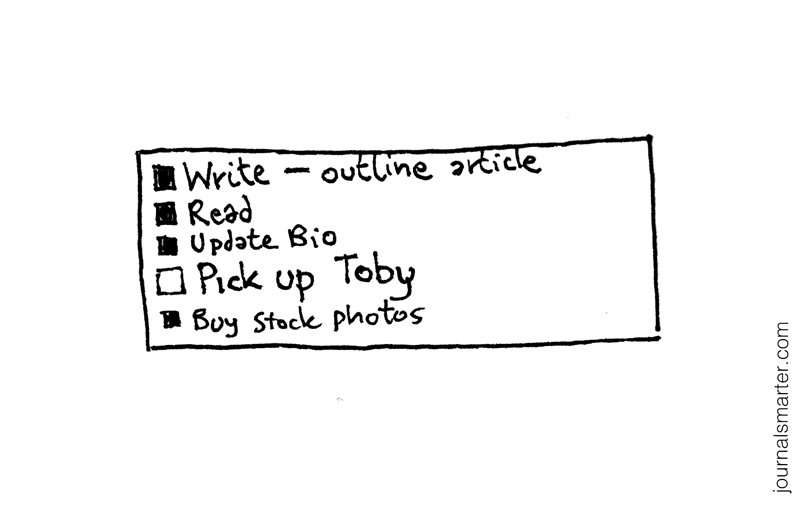 Write - outline article
Read
Update Bio
Pick up Toby
Buy stock photos
journalsmarter.com